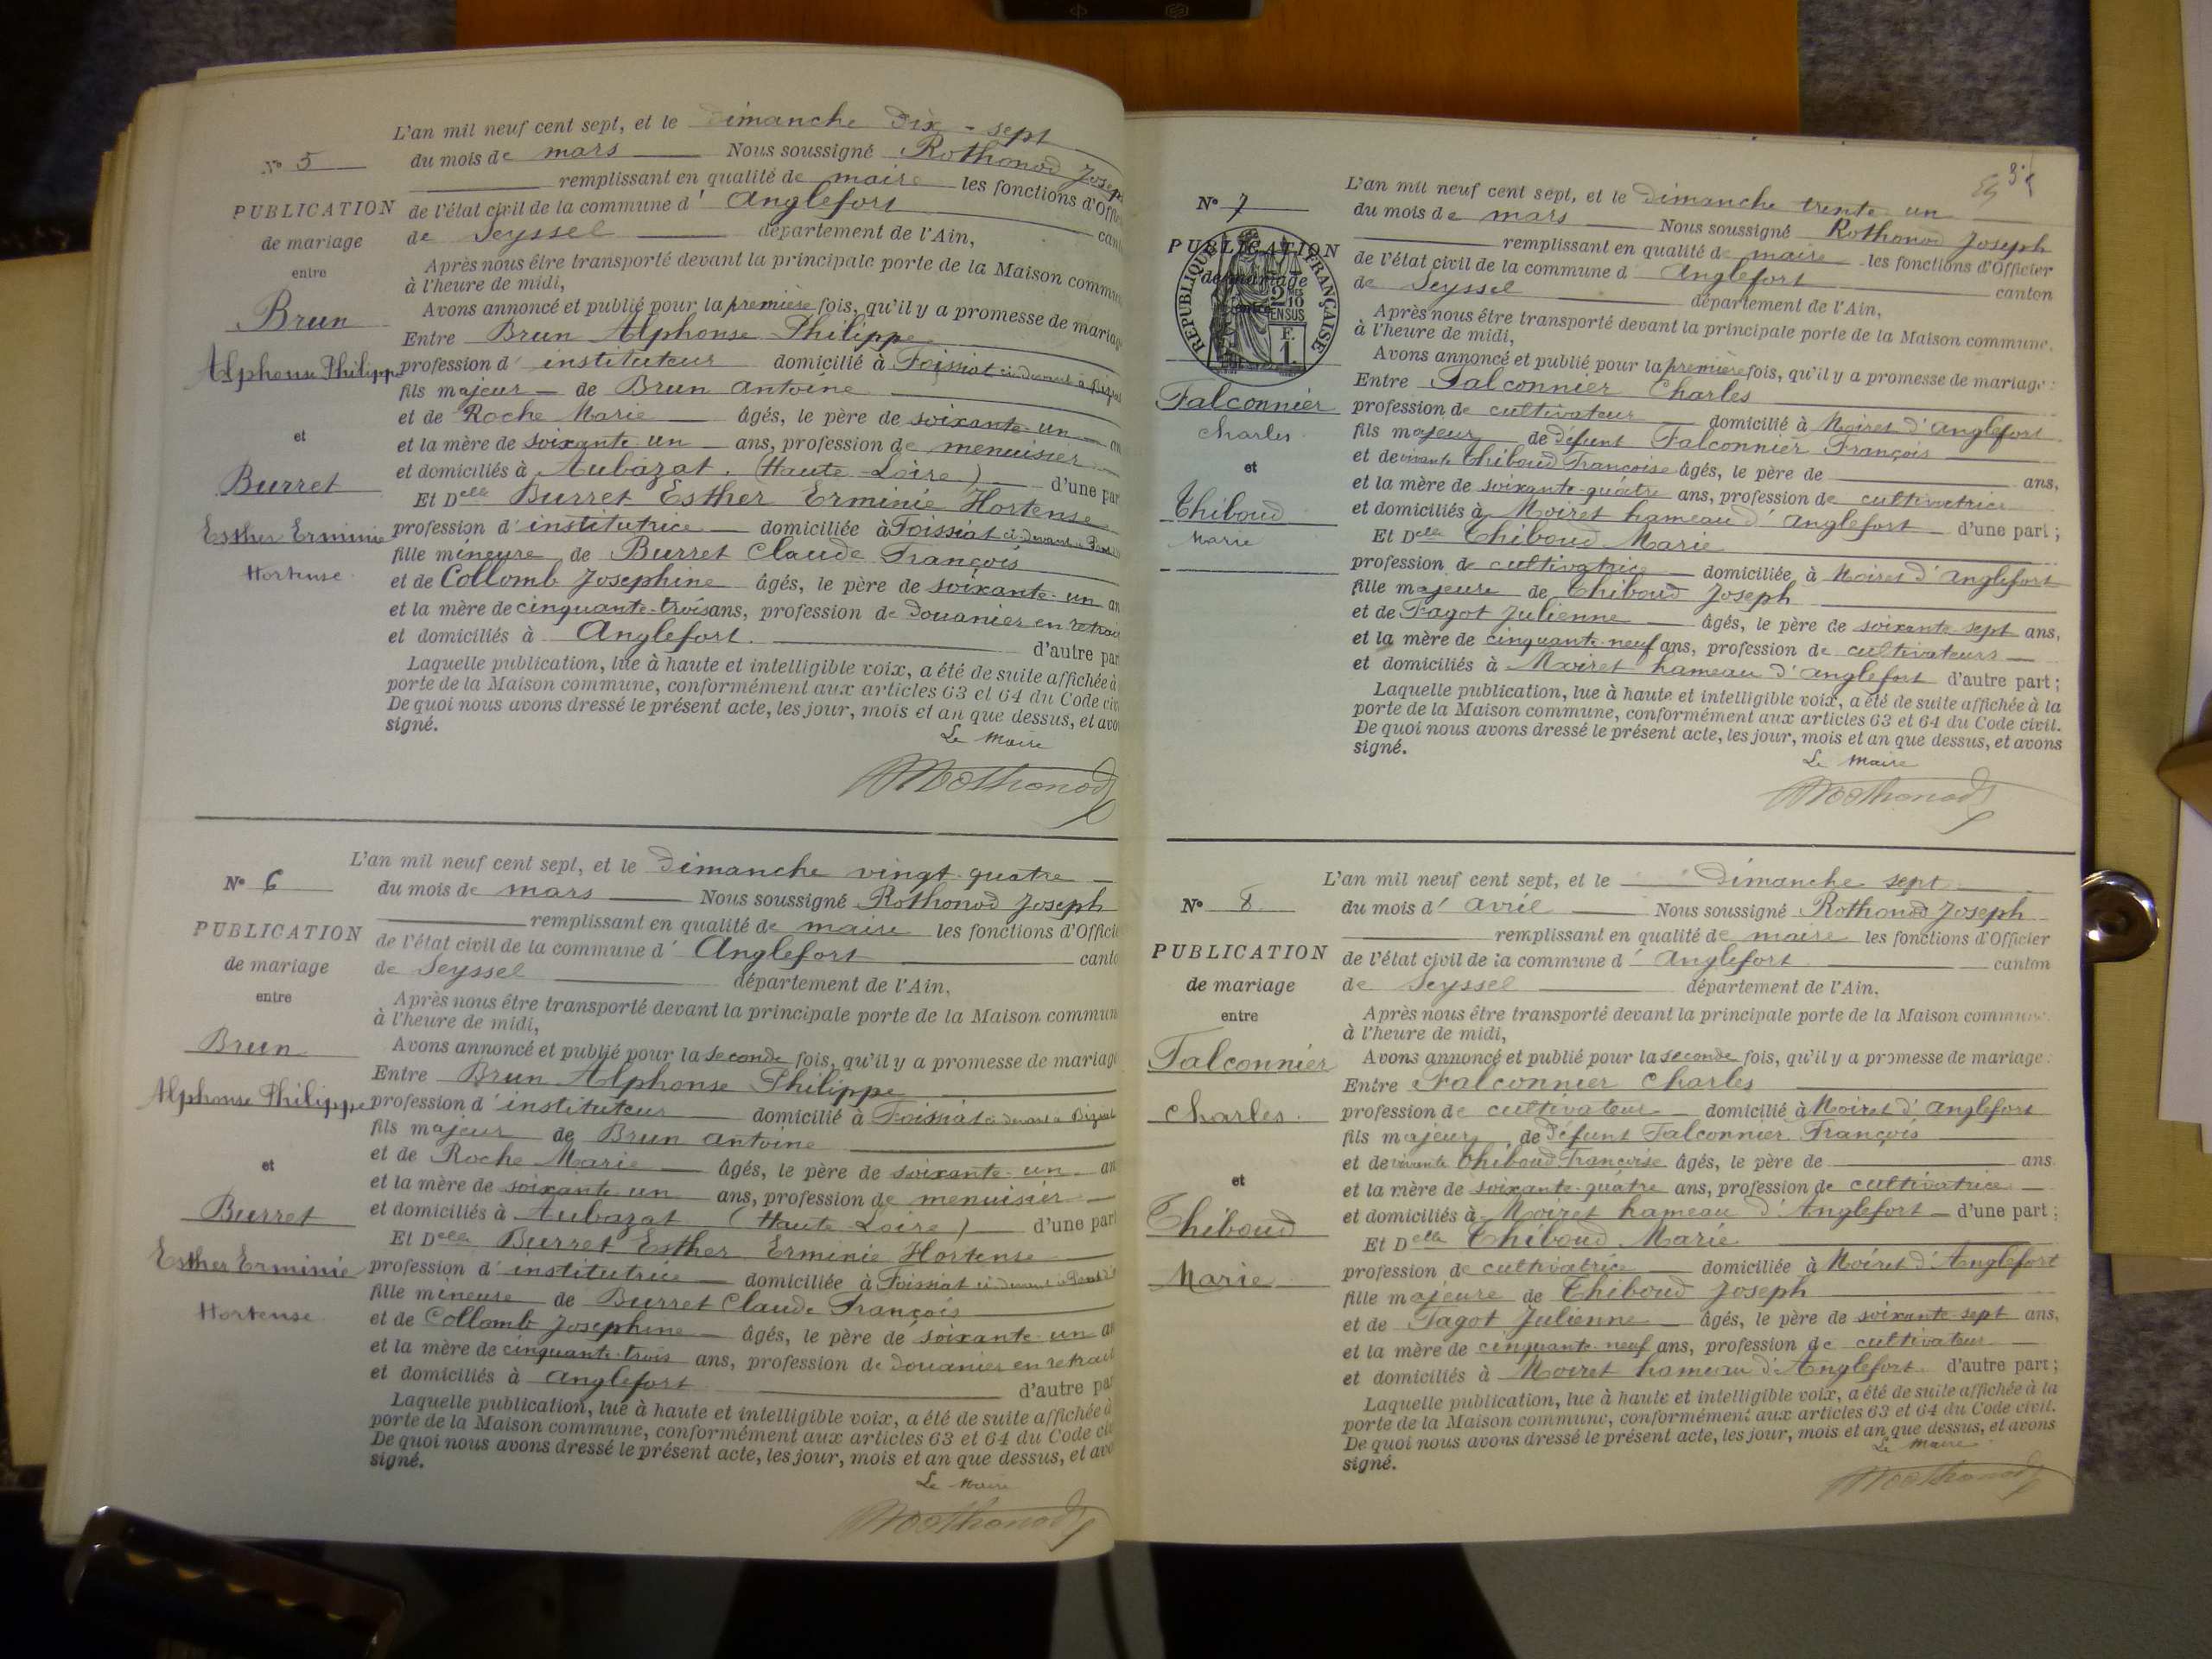 L'an mil neuf cent sept, et le dimanche dix-sept
N° 5 du mois de mars Nous soussigné Rothonod Joseph
remplissant en qualité de maire les fonctions d'Offic
PUBLICATION de l'état civil de la commune d' Anglefort cant
de mariage de Seyssel département de l'Ain,
entre Après nous être transporté devant la principale porte de la Maison commu
à l'heure de midi,
Brun Avons annoncé et publié pour la première fois, qu'il y a promesse de mariag
Entre Brun Alphonse Philippe
Alphonse Philippe profession d' instituteur domicilié à Foissiat ci-devant à
fils majeur de Brun Antoine
et de Roche Marie âgés, le père de soixante-un an
et et la mère de soixante un ans, profession de menuisier
et domiciliés à Aubazat (Haute-Loire) d'une par
Burret Et Delle Burret Esther Erminie Hortense
Esther Erminie profession d' institutrice domiciliée à Foissiat ci-devant à
fille mineure de Burret Claude François
Hortense et de Collomb Josephine âgés, le père de soixante-un an
et la mère de cinquante-trois ans, profession de douanier en retrai
et domiciliés à Anglefort d'autre par
Laquelle publication, lue à haute et intelligible voix, a été de suite affichée à
porte de la Maison commune, conformément aux articles 63 et 64 du Code civ
De quoi nous avons dressé le présent acte, les jour, mois et an que dessus, et avo
signé.
Le Maire
Rothonod
L'an mil neuf cent sept, et le dimanche vingt-quatre
N° 6 du mois de mars Nous soussigné Rothonod Joseph
remplissant en qualité de maire les fonctions d'Offici
PUBLICATION de l'état civil de la commune d' Anglefort canto
de mariage de Seyssel département de l'Ain,
entre Après nous être transporté devant la principale porte de la Maison commun
à l'heure de midi,
Brun Avons annoncé et publié pour la seconde fois, qu'il y a promesse de mariag
Entre Brun Alphonse Philippe
Alphonse Philippe profession d' instituteur domicilié à Foissiat ci-devant à
fils majeur de Brun Antoine
et de Roche Marie âgés, le père de soixante-un an
et et la mère de soixante un ans, profession de menuisier
et domiciliés à Aubazat (Haute Loire) d'une part
Burret Et Delle Burret Esther Erminie Hortense
Esther Erminie profession d' institutrice domiciliée à Foissiat ci-devant à
fille mineure de Burret Claude François
Hortense et de Collomb Josephine âgés, le père de soixante-un an
et la mère de cinquante-trois ans, profession de douanier en retrait
et domiciliés à Anglefort d'autre par
Laquelle publication, lue à haute et intelligible voix, a été de suite affichée à
porte de la Maison commune, conformément aux articles 63 et 64 du Code civ
De quoi nous avons dressé le présent acte, les jour, mois et an que dessus, et avo
signé.
Le Maire
Rothonod
L'an mil neuf cent sept, et le dimanche trente-un
N° 7 du mois de mars Nous soussigné Rothonod Joseph
remplissant en qualité de maire les fonctions d'Officier
PUBLICATION de l'état civil de la commune d' Anglefort canton
de mariage de Seyssel département de l'Ain,
entre Après nous être transporté devant la principale porte de la Maison commune.
RÉPUBLIQUE FRANÇAISE
2/10 EN SUS
F. 1.
à l'heure de midi,
Avons annoncé et publié pour la première fois, qu'il y a promesse de mariage :
Falconnier Entre Falconnier Charles
Charles profession de cultivateur domicilié à Moiret d'Anglefort
fils majeur de défunt Falconnier François
et et de vivante Thiboud Françoise âgés, le père de ans,
et la mère de soixante-quatre ans, profession de cultivatrice
Thiboud et domiciliés à Moiret hameau d'Anglefort d'une part ;
Marie Et Delle Thiboud Marie
profession de cultivatrice domiciliée à Moiret d'Anglefort
fille majeure de Thiboud Joseph
et de Fagot Julienne âgés, le père de soixante-sept ans,
et la mère de cinquante-neuf ans, profession de cultivateurs
et domiciliés à Moiret hameau d'Anglefort d'autre part ;
Laquelle publication, lue à haute et intelligible voix, a été de suite affichée à la
porte de la Maison commune, conformément aux articles 63 et 64 du Code civil.
De quoi nous avons dressé le présent acte, les jour, mois et an que dessus, et avons
signé.
Le Maire
Rothonod
L'an mil neuf cent sept, et le dimanche sept
N° 8 du mois d' avril Nous soussigné Rothonod Joseph
remplissant en qualité de maire les fonctions d'Officier
PUBLICATION de l'état civil de la commune d' Anglefort canton
de mariage de Seyssel département de l'Ain,
entre Après nous être transporté devant la principale porte de la Maison commune.
à l'heure de midi,
Falconnier Avons annoncé et publié pour la seconde fois, qu'il y a promesse de mariage :
Entre Falconnier Charles
Charles profession de cultivateur domicilié à Moiret d'Anglefort
fils majeur de défunt Falconnier François
et de vivante Thiboud Françoise âgés, le père de ans
et et la mère de soixante-quatre ans, profession de cultivatrice
et domiciliés à Moiret hameau d'Anglefort d'une part ;
Thiboud Et Delle Thiboud Marie
Marie profession de cultivatrice domiciliée à Moiret d'Anglefort
fille majeure de Thiboud Joseph
et de Fagot Julienne âgés, le père de soixante-sept ans,
et la mère de cinquante-neuf ans, profession de cultivateur
et domiciliés à Moiret hameau d'Anglefort d'autre part ;
Laquelle publication, lue à haute et intelligible voix, a été de suite affichée à la
porte de la Maison commune, conformément aux articles 63 et 64 du Code civil.
De quoi nous avons dressé le présent acte, les jour, mois et an que dessus, et avons
signé.
Le Maire
Rothonod